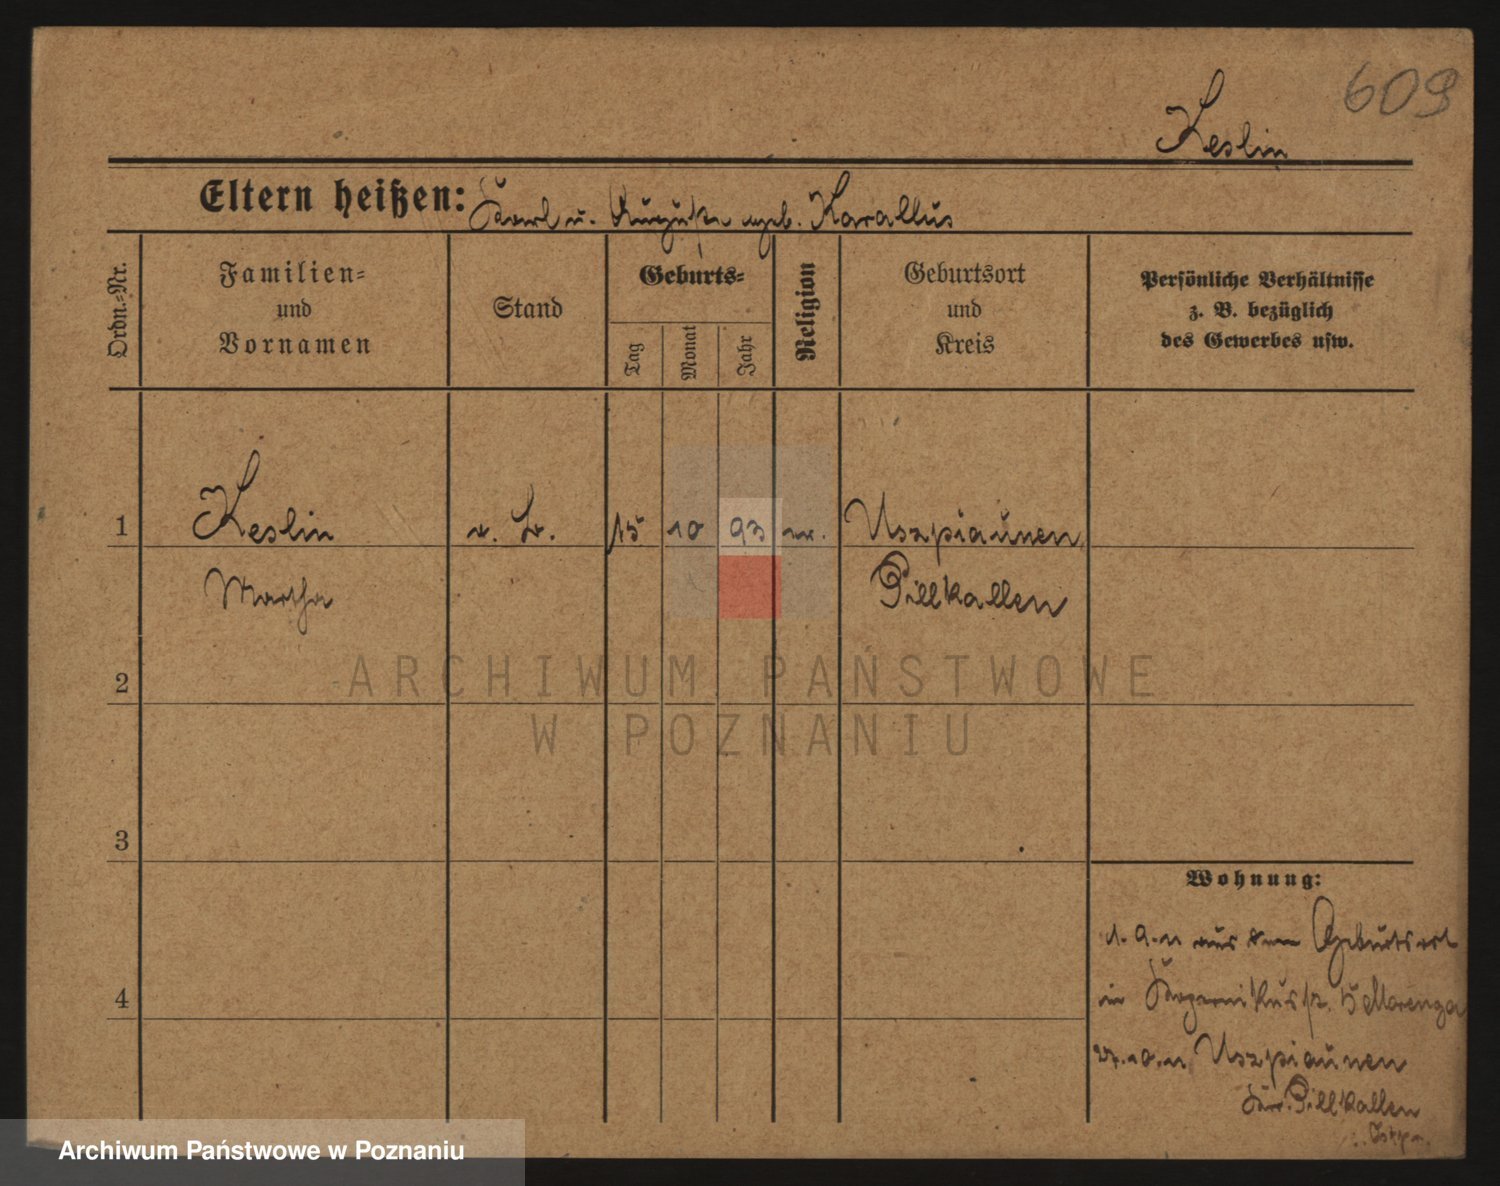 609
Keslin
Eltern heißen: Karl u. Auguste geb. Karallus
Ordn.=Nr.
Familien=
und
Vornamen
Stand
Geburts=
Tag
Monat
Jahr
Religion
Geburtsort
und
Kreis
Persönliche Verhältnisse
z. B. bezüglich
des Gewerbes usw.
1
Keslin
15
10
93
ev.
Uszpiaunen
Martha
Pillkallen
ARCHIWUM PAŃSTWOWE
W POZNANIU
2
3
4
Wohnung:
aus dem Geburtsort
in Kopernikusstr. 5 Marenga
Uszpiaunen
Kr. Pillkallen
Ostpr.
Archiwum Państwowe w Poznaniu